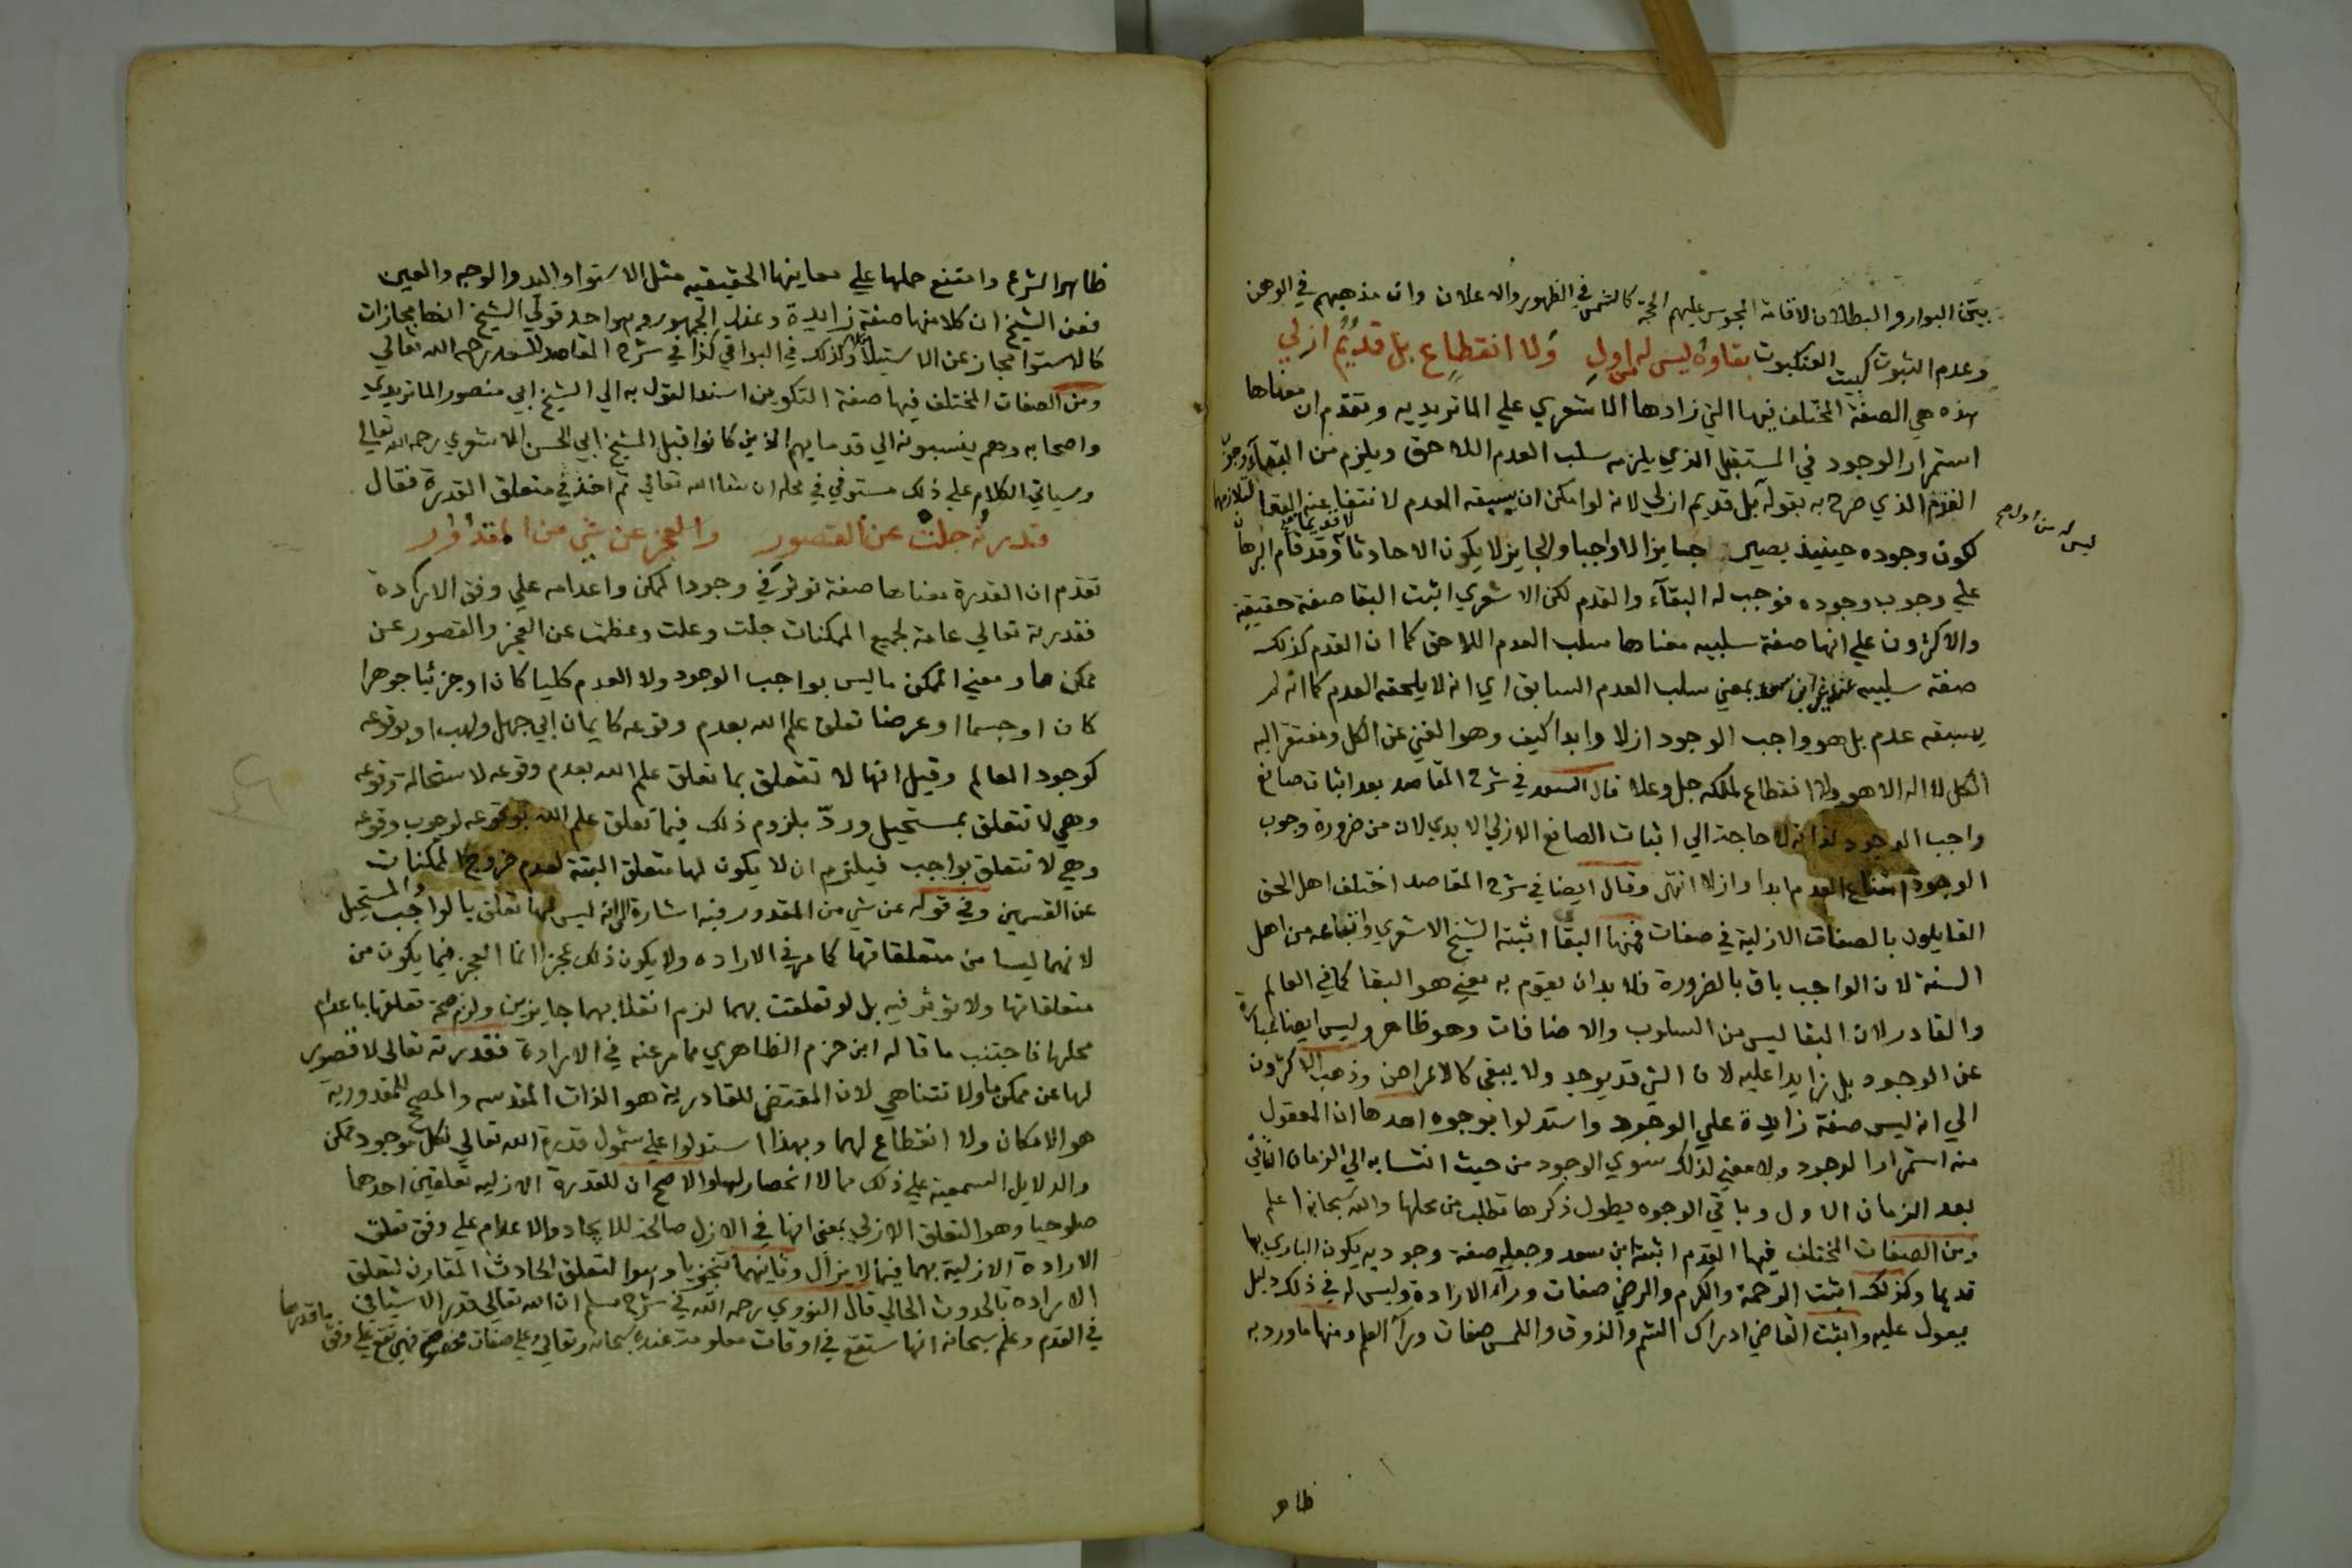 بيتي البوار والبطلان لاقامة المجوس عليهم الحجة كالشمس في الظهور والاعلان وان مذهبهم في الوهن
وعدم الثبوت كبيت العنكبوت بقاوه ليس له من اول ولا انقطاع بل قديم ازلي
هذه هي الصفة المختلف فيها التي زادها الاشعري علي الماتريديه وتقدم ان معناها
استمرار الوجود في المستقبل الذي يلزمه سلب العدم اللاحق ويلزم من البقاء وجو
القدم الذي صرح به بقوله بل قديم ازلي لانه لو امكن ان يسبقه العدم لانتفا عنه البقا لتلازمهما
ليس له من اول صح
لكون وجوده حينيذ يصير جايزا لا واجبا والجايز لا يكون الا حادثا لا قديما وقد قام البرهان
علي وجوب وجوده فوجب له البقآء والقدم لكن الاشعري اثبت البقا صفة حقيقية
والاكثرون علي انها صفة سلبيه معناها سلب العدم اللاحق كما ان القدم كذلك
صفة سلبيه عند غير ابن سعد بمعني سلب العدم السابق اي انه لا يلحقه العدم كما انه لم
يسبقه عدم بل هو واجب الوجود ازلا وابدا كيف وهو الغني عن الكل ومفتقر اليه
الكل لا اله الا هو ولا انقطاع لملكه جل وعلا قال السعد في شرح المقاصد بعد اثبات صانع
واجب الوجود لذاته لا حاجة الي اثبات الصانع الازلي الابدي لان من ضرورة وجوب
الوجود امتناع العدم ابدا وازلا انتهى وقال ايضا في شرح المقاصد اختلف اهل الحق
القايلون بالصفات الازلية في صفات فمنها البقا اثبته الشيخ الاشعري واتباعه من اهل
السنة لان الواجب باق بالضرورة فلا بد ان يقوم به معني هو البقا كما في العالم
والقادر لان البقا ليس من السلوب والاضافات وهو ظاهر وليس ايضا عبارة
عن الوجود بل زايدا عليه لان الشي قد يوجد ولا يبقي كالاعراض وذهب الاكثرون
الي انه ليس صفة زايدة علي الوجود واستدلوا بوجوه احدها ان المعقول
منه استمرار الوجود ولا معني لذلك سوي الوجود من حيث انتسابه الي الزمان الثاني
بعد الزمان الاول وباقي الوجوه يطول ذكرها تطلب من محلها والله سبحانه اعلم
ومن الصفات المختلف فيها القدم اثبته ابن سعد وجعله صفة وجوديه يكون الباري بها
قديما وكذلك اثبت الرحمة والكرم والرضي صفات ورآء الارادة وليس له في ذلك دليل
يعول عليه واثبت القاضي ادراك الشم والذوق واللمس صفات ورآء العلم ومنها ما ورد به
ظاهر
ظاهر الشرع وامتنع حملها علي معاينها الحقيقيه مثل الاستوا واليد والوجه والعين
فعن الشيخ ان كلا منها صفة زايدة وعند الجمهور وهو احد قولي الشيخ انها مجازات
كالاستوا مجاز عن الاستيلا وكذلك في البواقي كذا في شرح المقاصد للسعد رحمه الله تعالي
ومن الصفات المختلف فيها صفة التكوين اسند القول به الي الشيخ ابي منصور الماتريدي
واصحابه وهم ينسبونه الي قدمايهم الذين كانوا قبل الشيخ ابي الحسن الاشعري رحمه الله تعالي
وسياتي الكلام علي ذلك مستوفي في محله ان شا الله تعالي ثم اخذ في متعلق القدرة فقال
قدرته جلت عن القصور والعجز عن شي من المقدور
تقدم ان القدرة معناها صفة توثر في وجود الممكن واعدامه علي وفق الارادة
فقدرته تعالي عامة لجميع الممكنات جلت وعلت وعظمت عن العجز والقصور عن
ممكن ما ومعني الممكن ما ليس بواجب الوجود ولا العدم كليا كان او جزئيا جوهرا
كان او جسما او عرضا تعلق علم الله بعدم وقوعه كايمان ابي جهل ولهب او بوقوعه
كوجود العالم وقيل انها لا تتعلق بما تعلق علم الله بعدم وقوعه لاستحالة وقوعه
وهي لا تتعلق بمستحيل وردّ بلزوم ذلك فيما تعلق علم الله بوقوعه لوجوب وقوعه
وهي لا تتعلق بواجب فيلزم ان لا يكون لها متعلق البتة لعدم خروج الممكنات
عن القسمين وفي قوله عن شي من المقدور فيه اشارة الي انه ليس لها تعلق بالواجب والمستحيل
لانهما ليسا من متعلقاتها كما مر في الاراده ولا يكون ذلك عجزا انما العجز فيما يكون من
متعلقاتها ولا توثر فيه بل لو تعلقت بهما لزم انقلابهما جايزين ولزم صحة تعلقها باعدام
محلها فاجتنب ما قاله ابن حزم الظاهري مما مر عنه في الارادة فقدرته تعالى لا قصور
لها عن ممكن ما ولا تتناهي لان المقتضي للقادرية هو الذات المقدسه والمصحح للمقدورية
هو الامكان ولا انقطاع لهما وبهذا استدلوا علي شمول قدرة الله تعالي لكل موجود ممكن
والدلايل السمعية علي ذلك مما لا انحصار لها والاصح ان للقدرة الازليه تعلقين احدهما
صلوحيا وهو التعلق الازلي بمعني انها في الازل صالحة للايجاد والاعدام علي وفق تعلق
الارادة الازلية بهما فيما لا يزال وثانيهما تنجزيا وهو التعلق الحادث المقارن لتعلق
الارادة بالحدوث الحالي قال النووي رحمه الله في شرح مسلم ان الله تعالي قدر الاشيا في
في القدم وعلم سبحانه انها ستقع في اوقات معلومة عنده سبحانه وتعالي وعلي صفات مخصوصة فهي تقع علي وفق ما قدرها